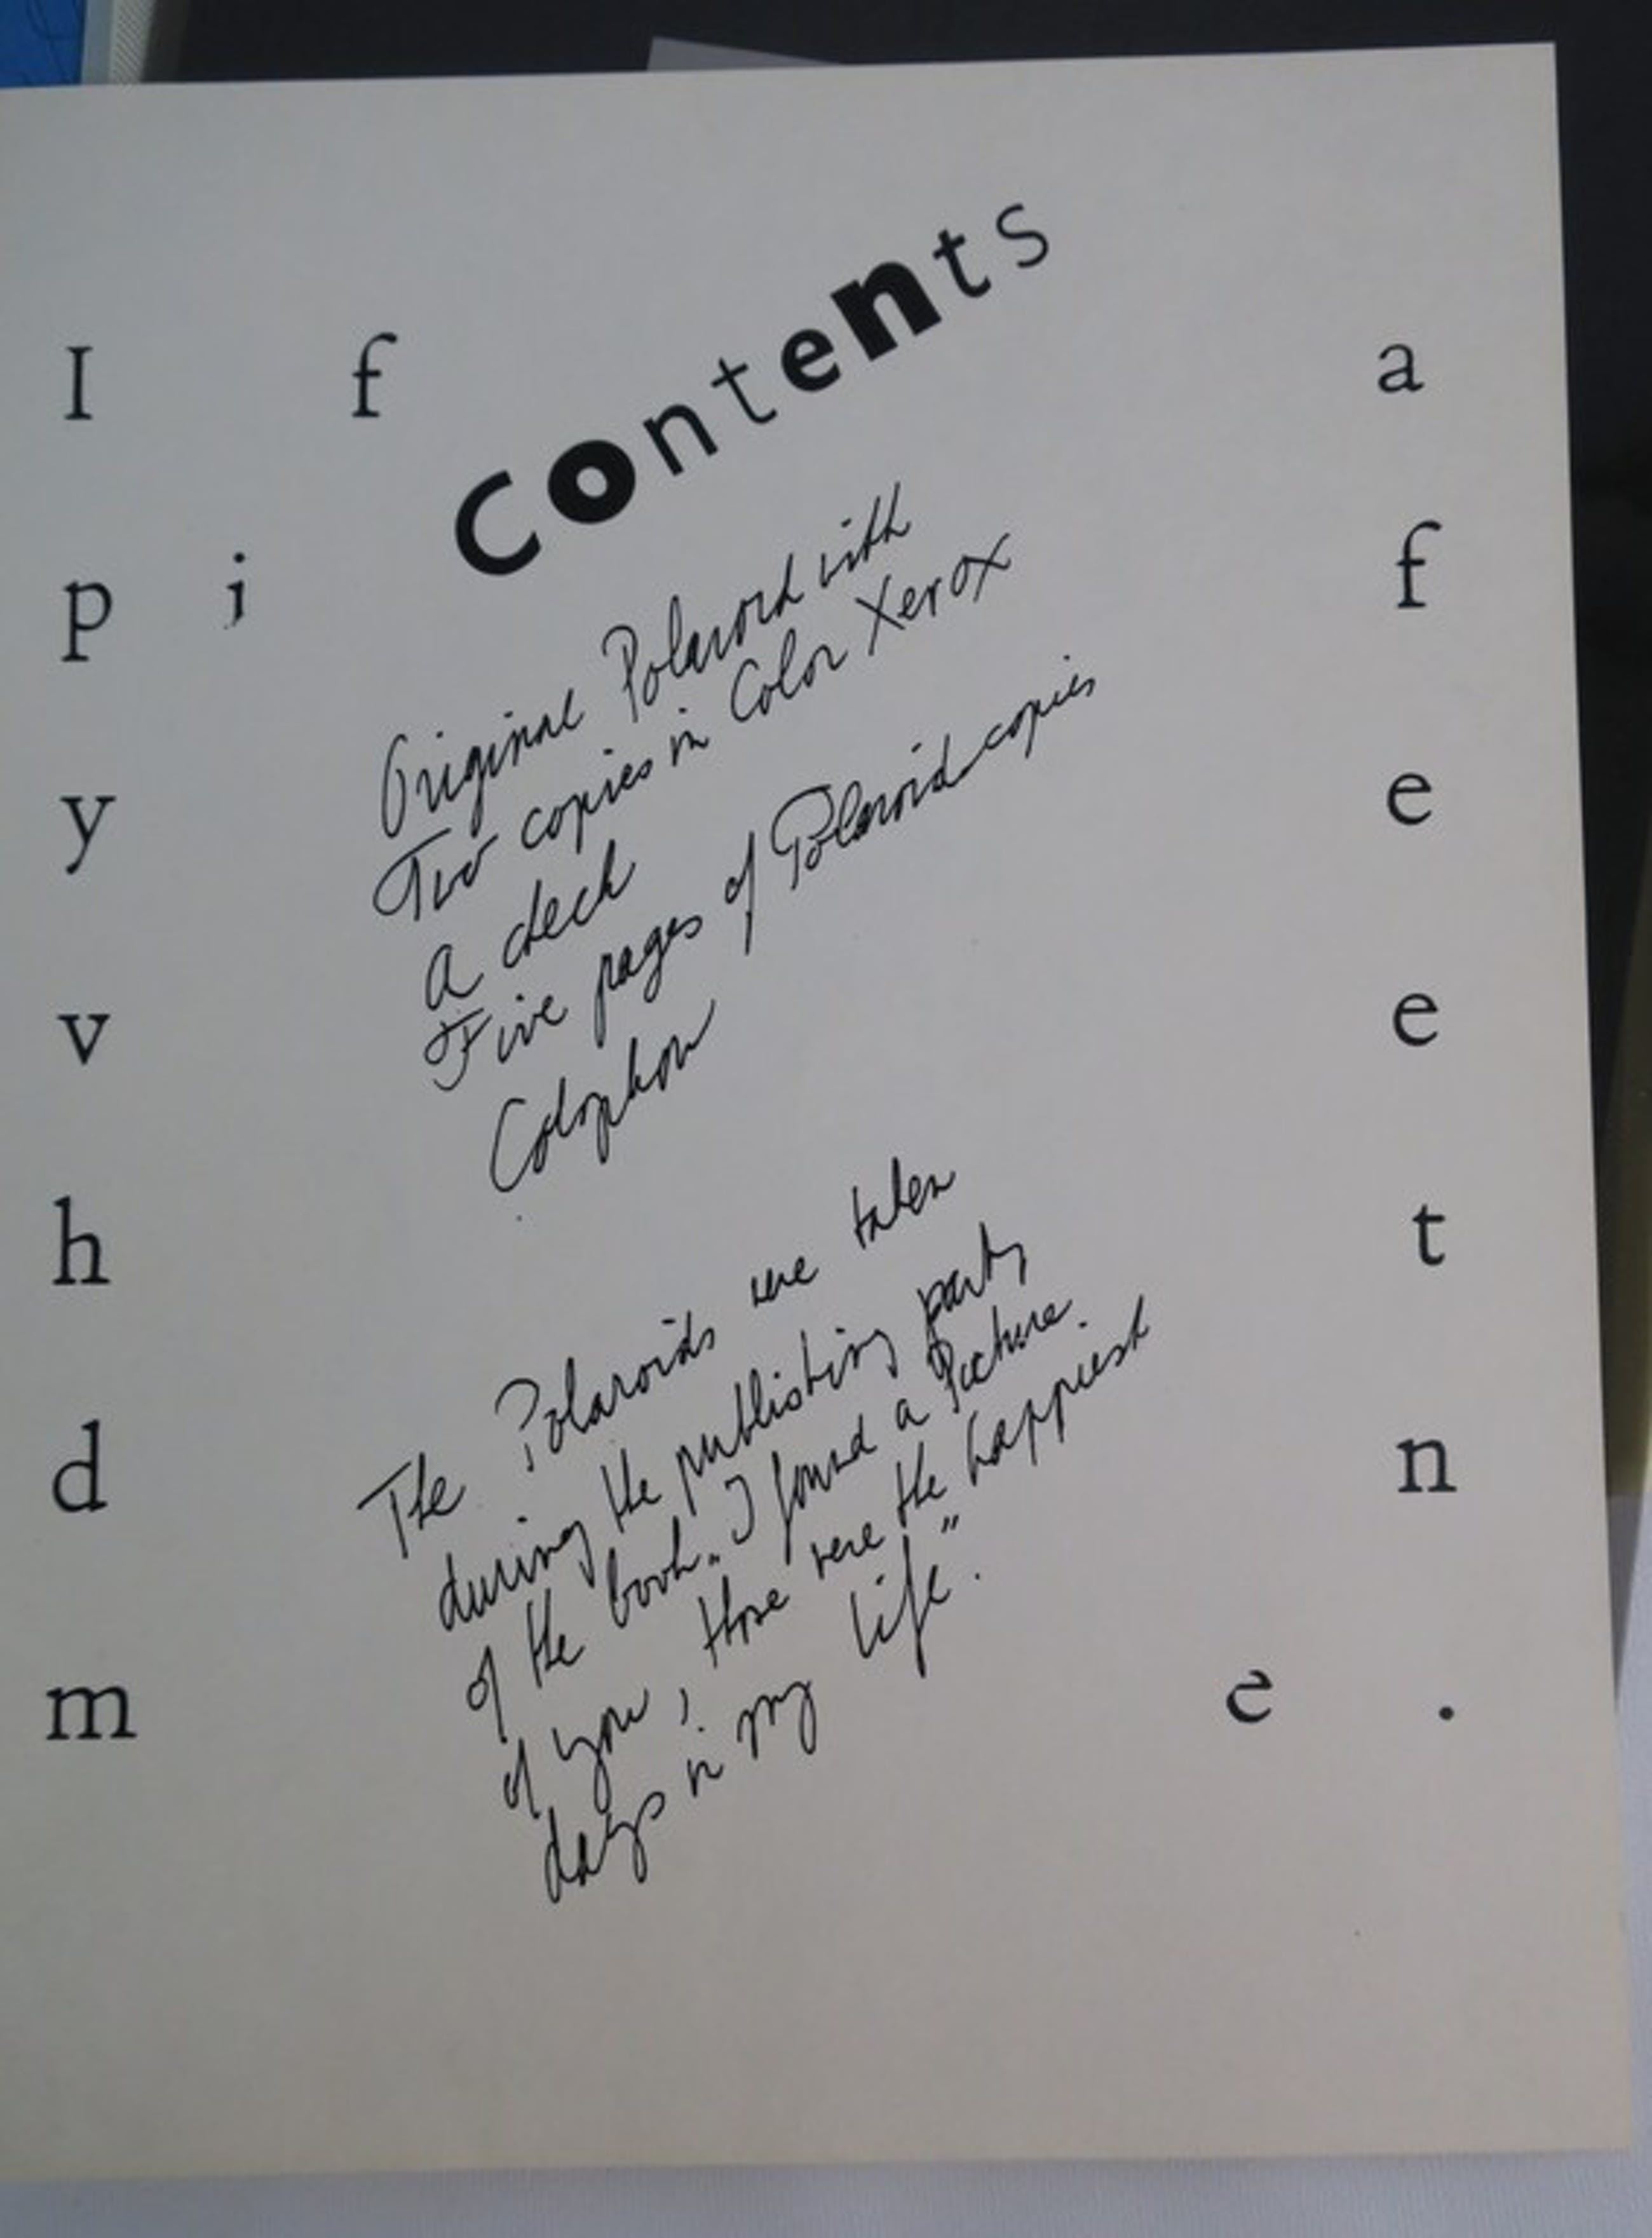 Contents
I f a
p i f
y e
v e
h t
d n
m e .
Original Polaroid with
Two copies in Color Xerox
A deck
Five pages of Polaroid copies
Colophon
The Polaroids were taken
during the publishing party
of the book "I found a Picture
of you, those were the happiest
days in my life".